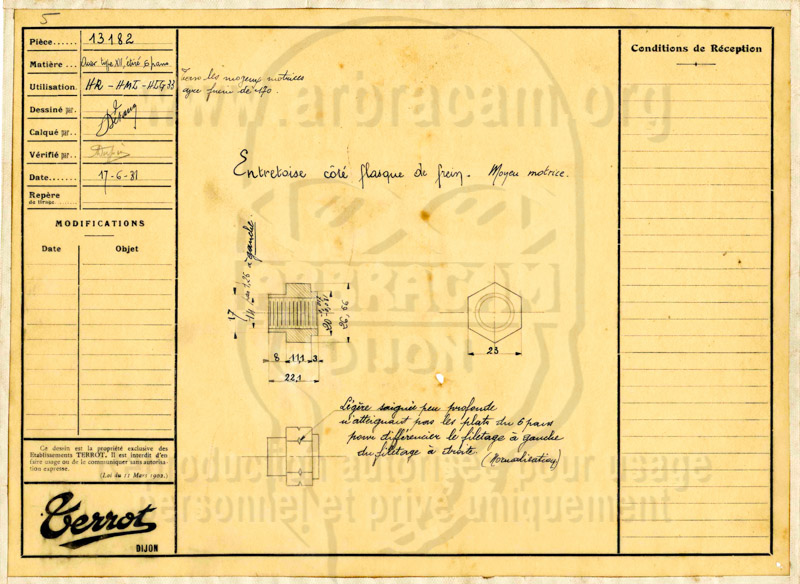 5
Pièce...... 13182
Matière ... type XII, étiré 6 pans
Utilisation. HR - HMI -
Dessiné par.
Calqué par..
Vérifié par..
Date....... 17-6-31
Repère
du tirage
MODIFICATIONS
Date Objet
Ce dessin est la propriété exclusive des
Etablissements TERROT. Il est interdit d'en
faire usage ou de le communiquer sans autorisa-
tion expresse.
(Loi du 11 Mars 1902.)
Terrot
DIJON
Tous les moyeux motrices
avec frein de 170.
Entretoise côté flasque de frein. Moyeu motrice.
à gauche.
17
8 11,1 3
22,1
23
Légère saignée peu profonde
n'atteignant pas les plats du 6 pans
pour différencier le filetage à gauche
du filetage à droite. (Normalisation)
Conditions de Réception
www.arbracam.org
ARBRACAM
DIJON
Reproduction autorisée pour usage
personnel et privé uniquement